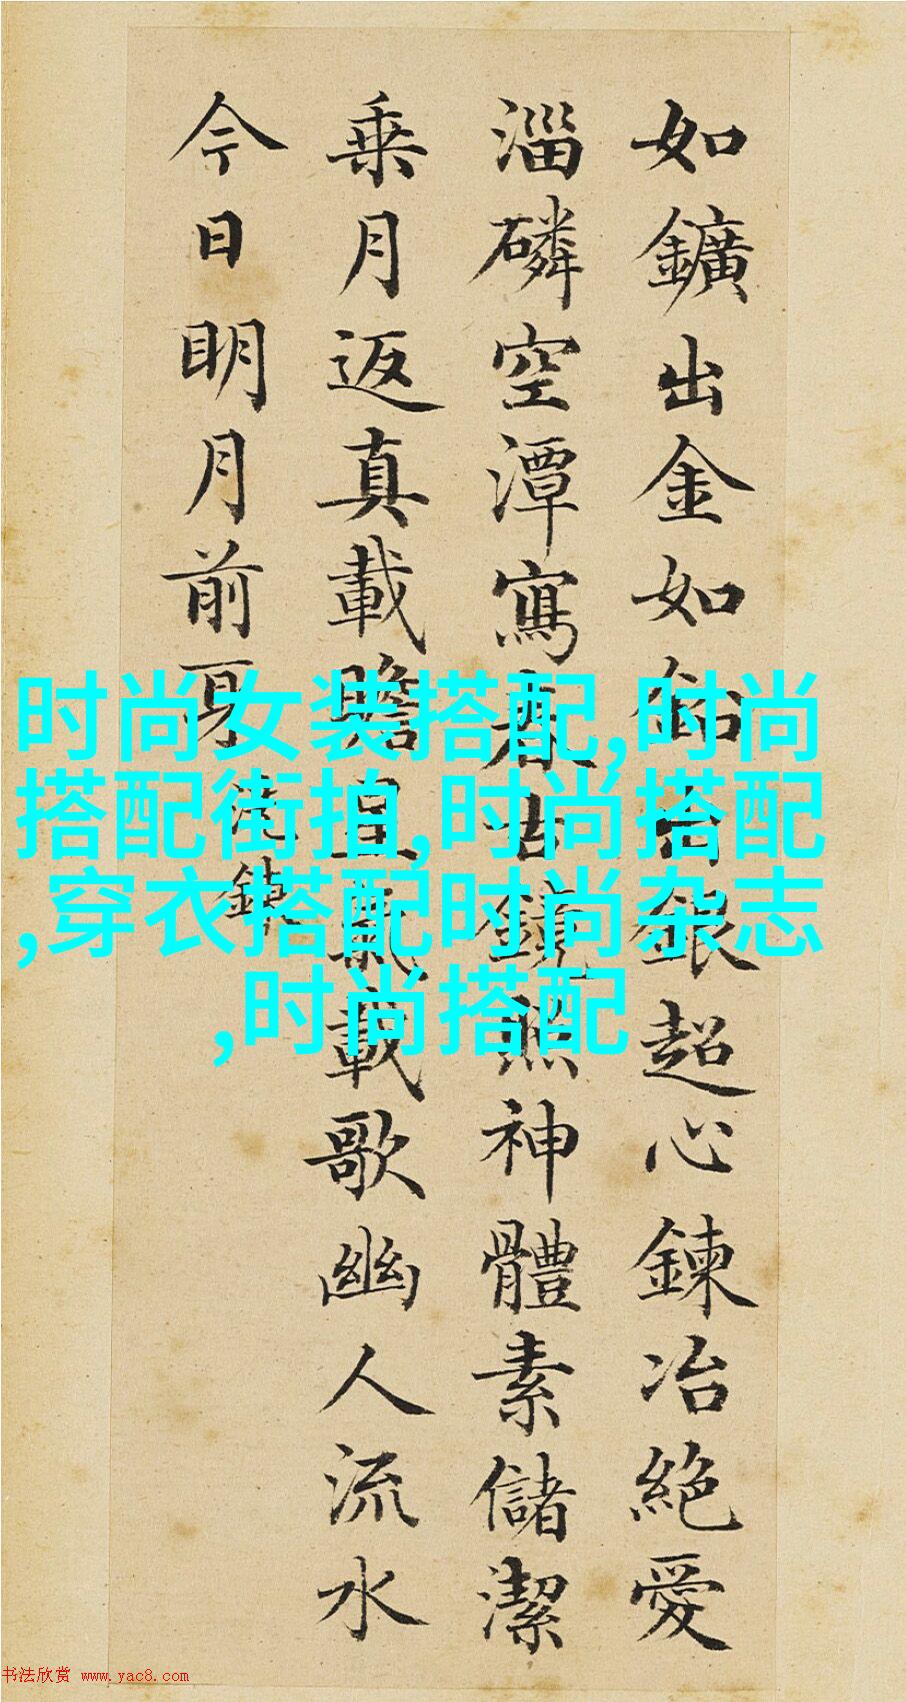 如鑛出金如鉛出銀超心鍊冶絕愛
淄磷空潭寫春古鏡照神體素儲潔
乗月返真載瞻星氣載歌幽人流水
今日明月前身
洗鍊
时尚女装搭配,时尚
搭配街拍,时尚搭配
,穿衣搭配时尚杂志
,时尚搭配
书法欣赏 www.yac8.com